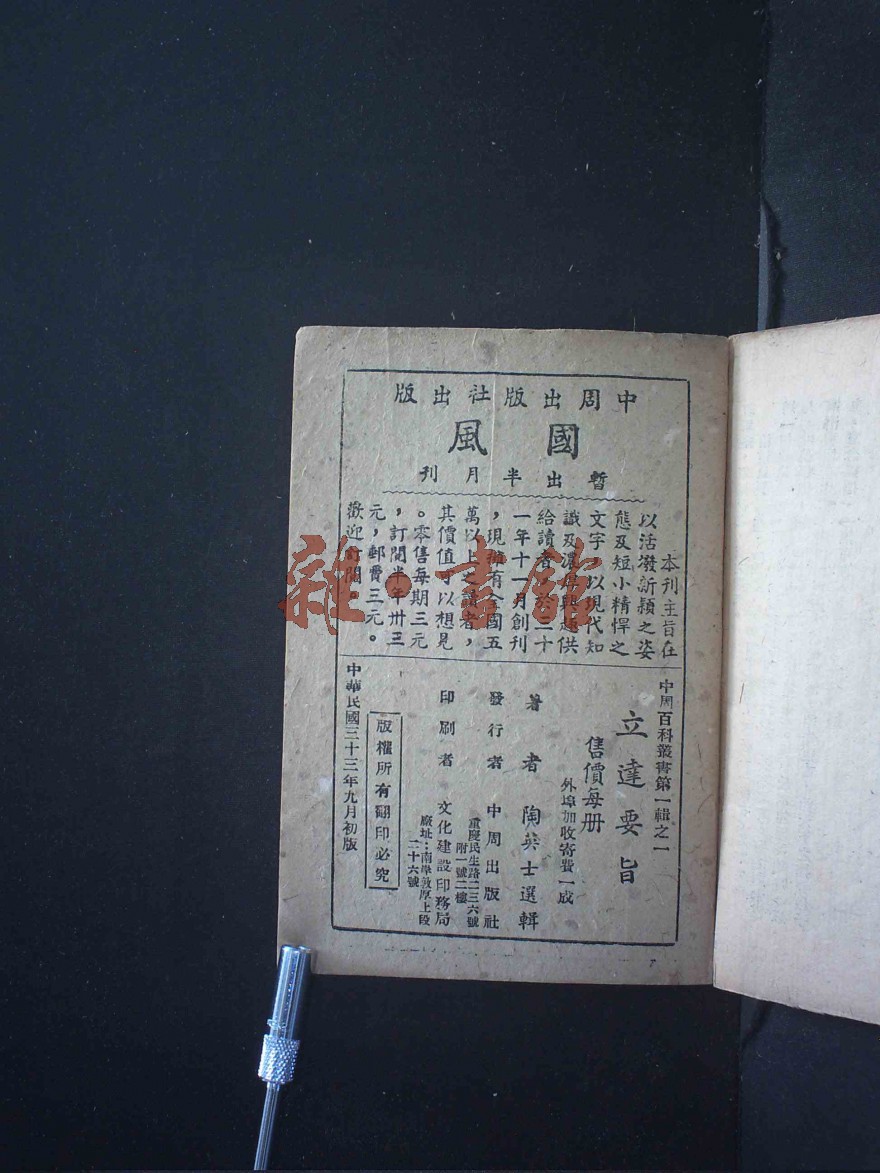 中周出版社出版
國風
暫出半月刊
本刊主旨在
以活潑新穎之姿
態及短小精悍之
文字以現代知
識及濃厚興趣供
給讀者於三十
一年十一月創刊
，現擁有全國五
萬以上之讀者，
其價值可以想見
。零售每期三元
，訂閱半年卅三
元，郵費三元。
歡迎訂閱
中周百科叢書第一輯之一
立達要旨
售價每册
外埠加收寄費一成
著者 陶英士選輯
發行者 中周出版社
重慶民生路二三六號
附一號二樓
印刷者 文化建設印務局
廠址：南岸敦厚上段
二十六號
版權所有翻印必究
中華民國三十三年九月初版
雜·書館